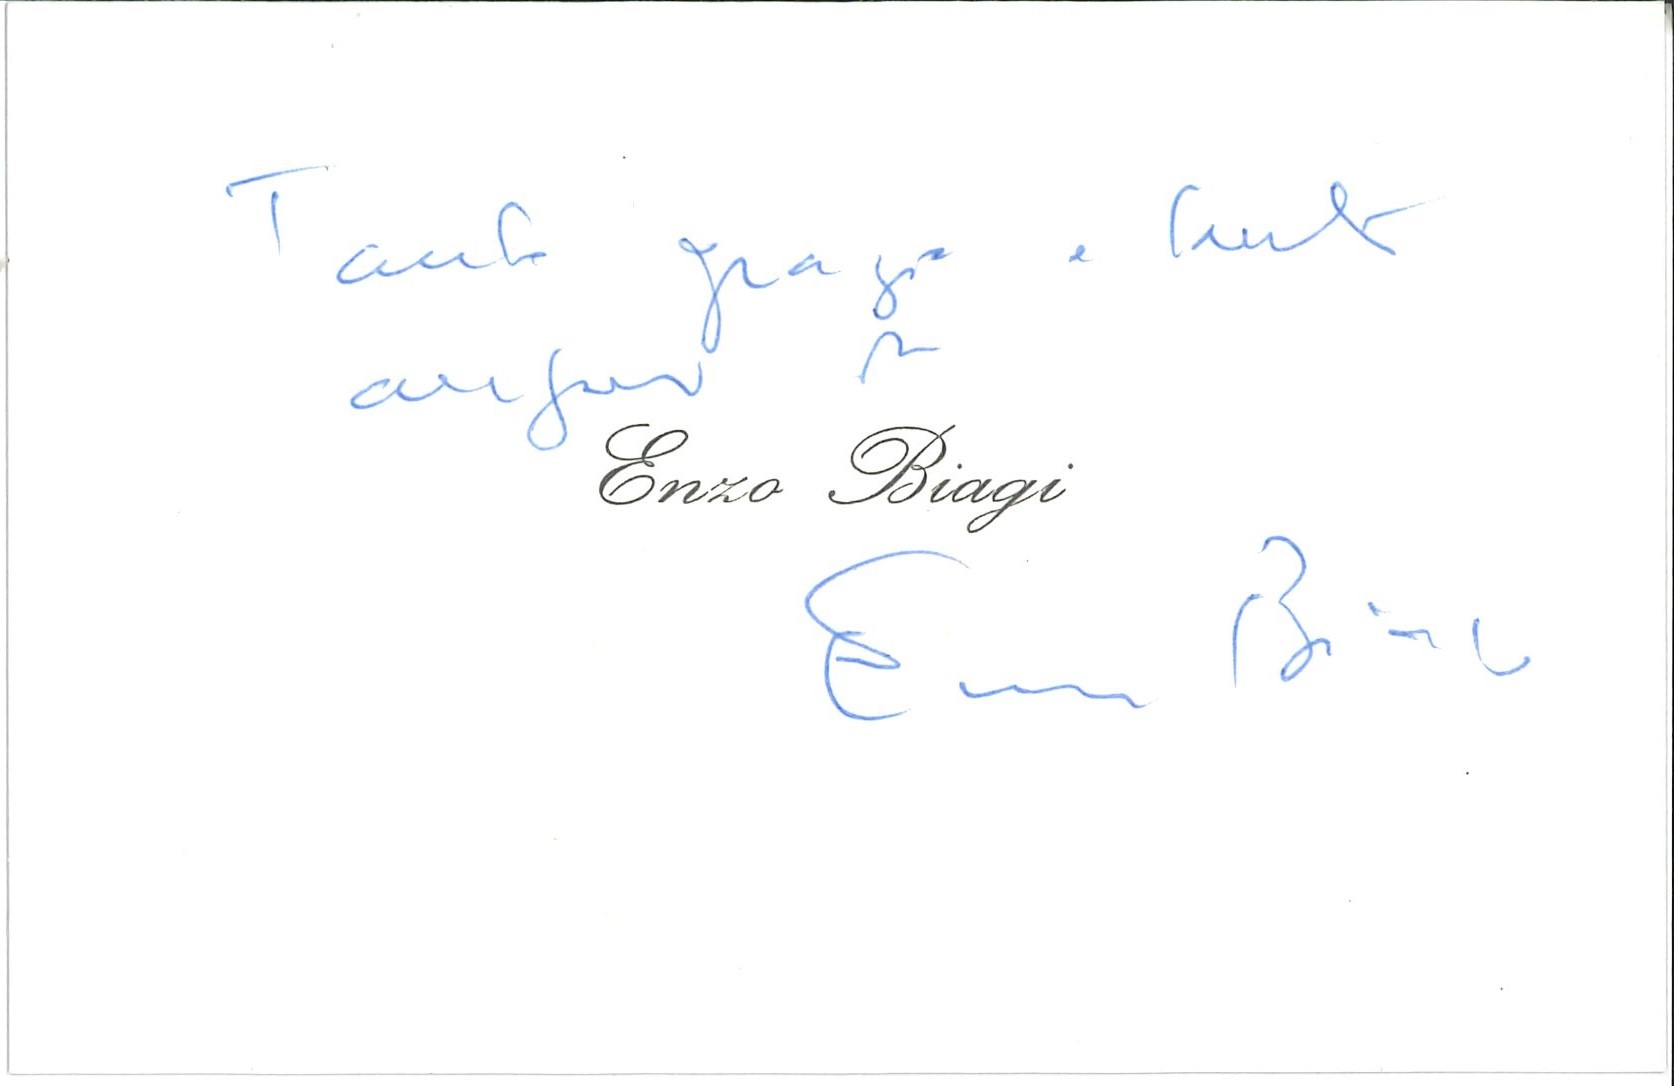 Tante grazie e tanti
auguri
Enzo Biagi
Enzo Biagi